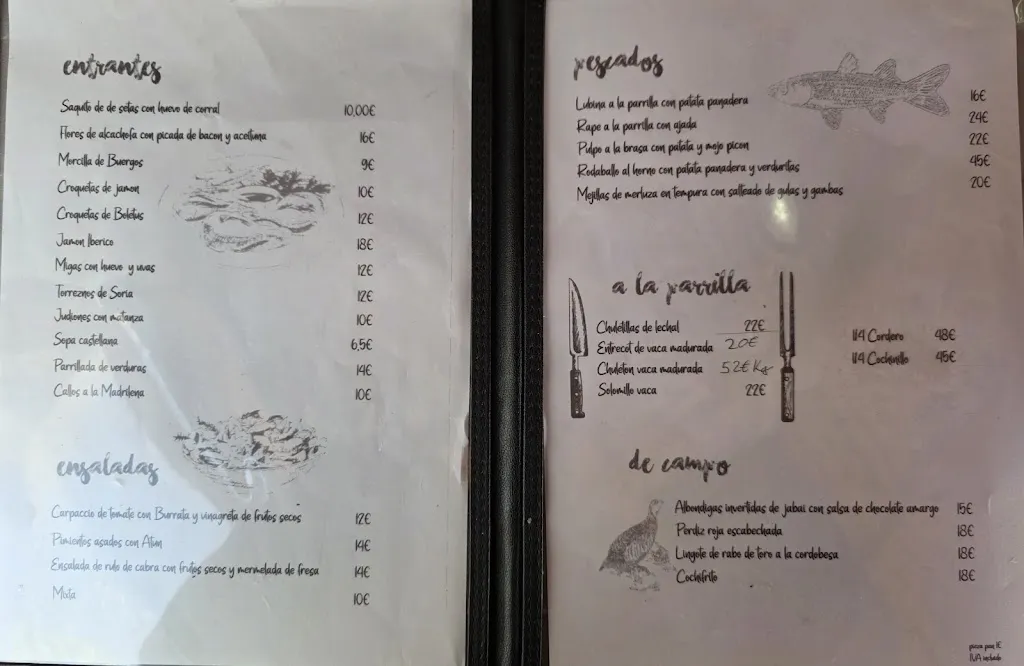 entrantes
Saquito de de setas con huevo de corral 10,00€
Flores de alcachofa con picada de bacon y aceituna 16€
Morcilla de Buergos 9€
Croquetas de jamon 10€
Croquetas de Boletus 12€
Jamon Iberico 18€
Migas con huevo y uvas 12€
Torreznos de Soria 12€
Judiones con matanza 10€
Sopa castellana 6,5€
Parrillada de verduras 14€
Callos a la Madrileña 10€
ensaladas
Carpaccio de tomate con Burrata y vinagreta de frutos secos 12€
Pimientos asados con Atún 14€
Ensalada de rulo de cabra con frutos secos y mermelada de fresa 14€
Mixta 10€
pescados
Lubina a la parrilla con patata panadera 16€
Rape a la parrilla con ajada 24€
Pulpo a la brasa con patata y mojo picon 22€
Rodaballo al horno con patata panadera y verduritas 45€
Mejillas de merluza en tempura con salteado de gulas y gambas 20€
a la parrilla
Chuletillas de lechal 22€
Entrecot de vaca madurada 20€
Chuleton vaca madurada 52€ Kg
Solomillo vaca 22€
1/4 Cordero 48€
1/4 Cochinillo 45€
de campo
Albondigas invertidas de jabai con salsa de chocolate amargo 15€
Perdiz roja escabechada 18€
Lingote de rabo de toro a la cordobesa 18€
Cochifrito 18€
pieza pan 1€
IVA incluido